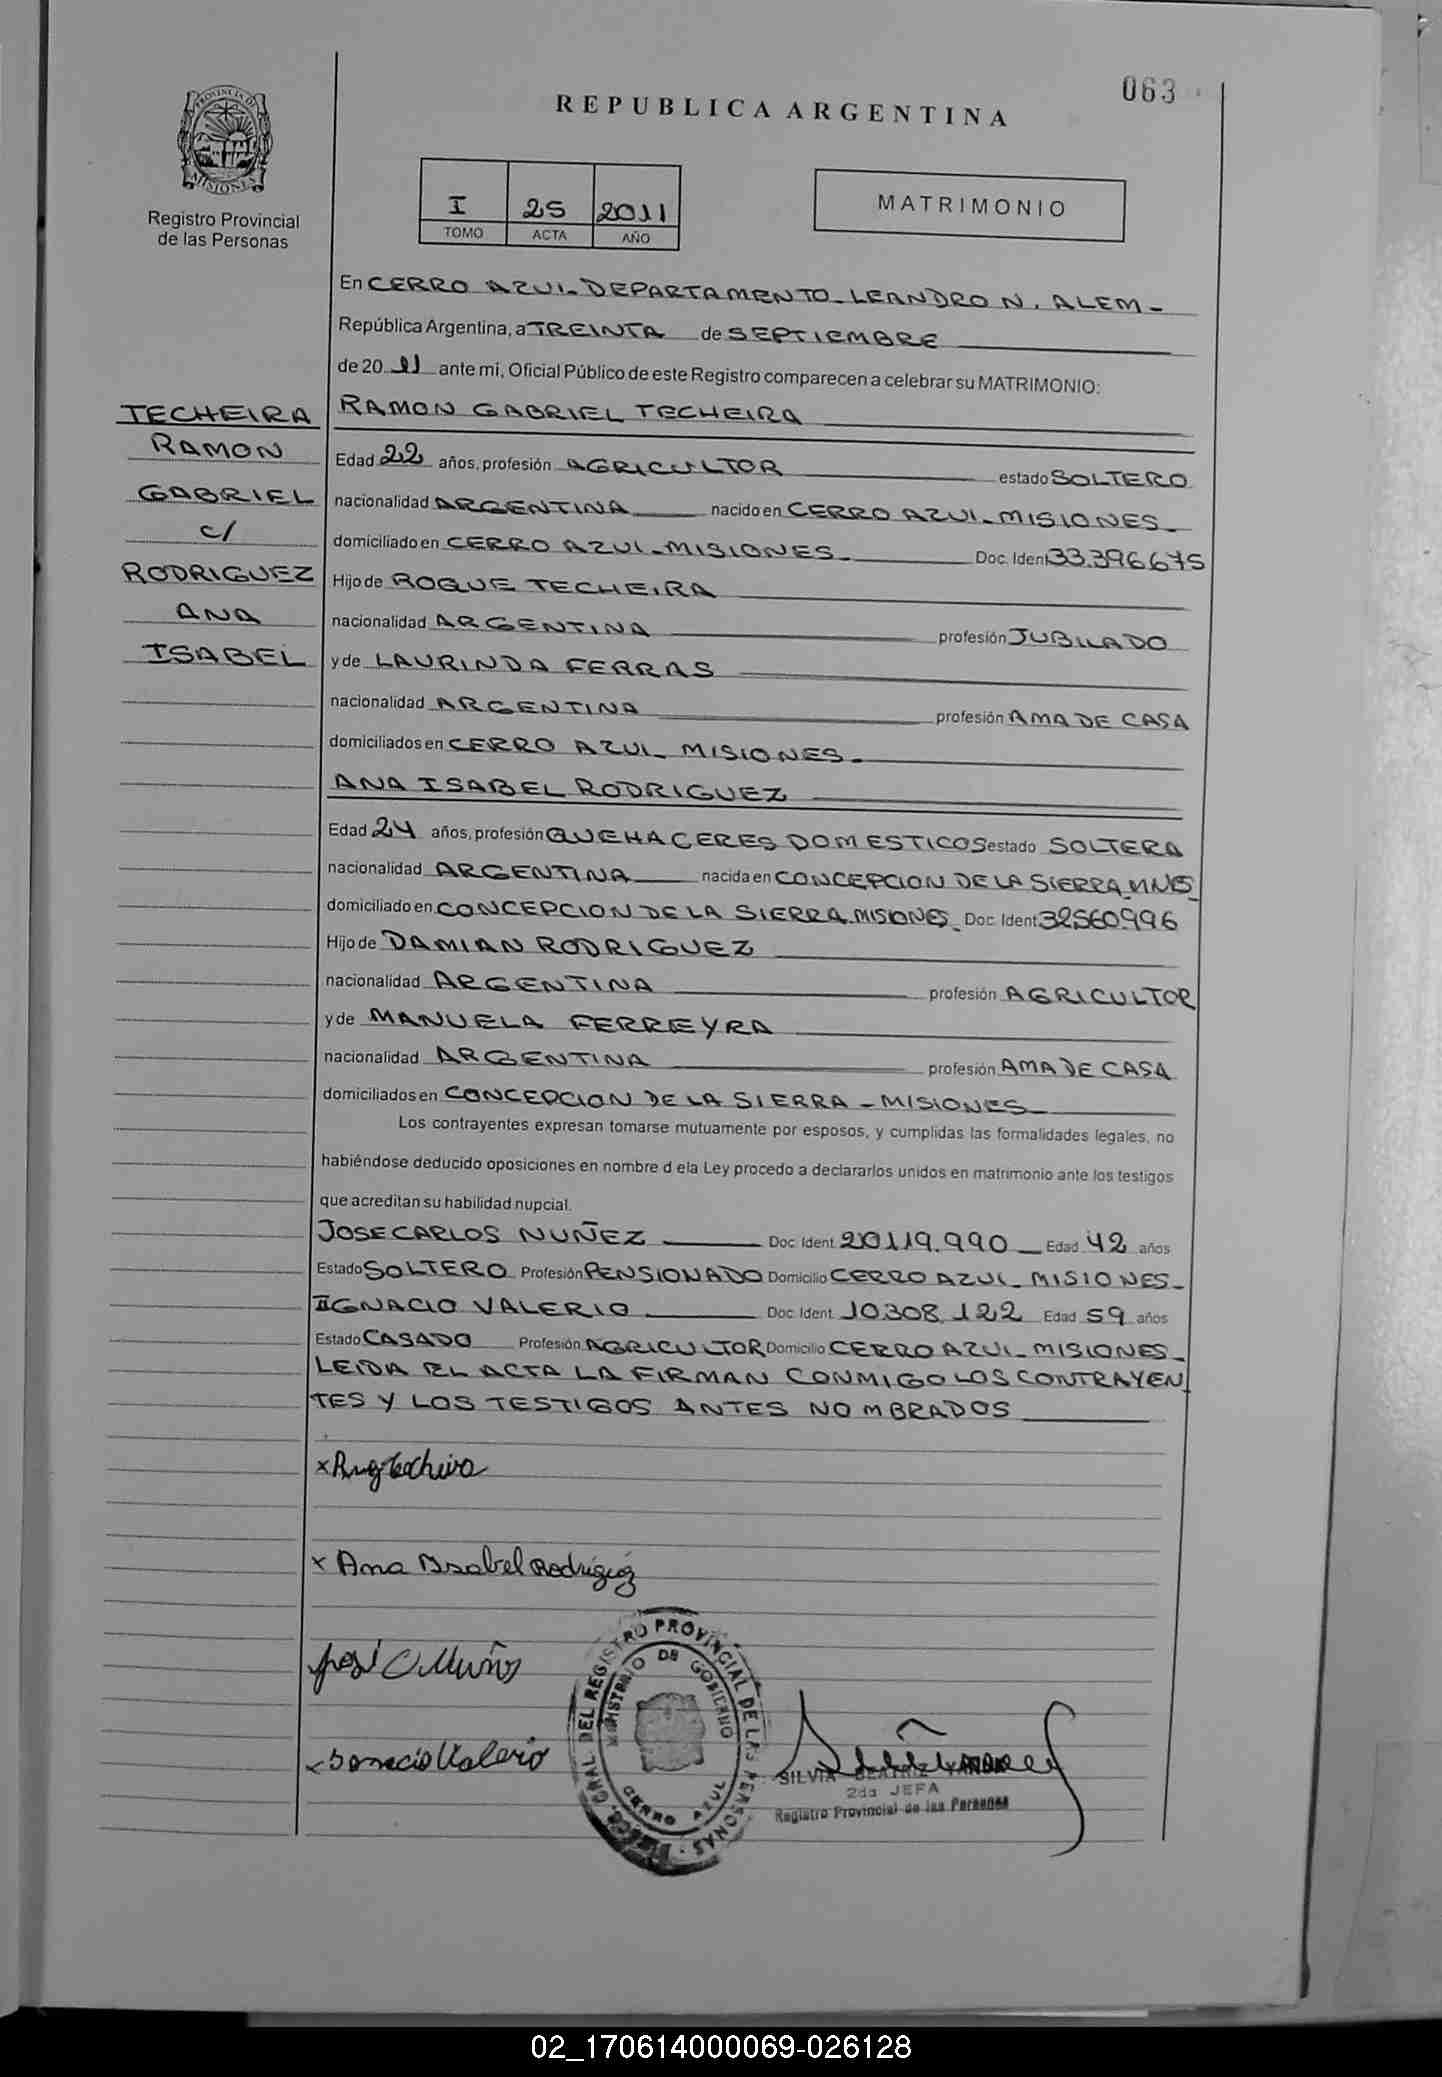 063
REPUBLICA ARGENTINA
PROVINCIA DE
MISIONES
Registro Provincial
de las Personas
I 25 2011
TOMO ACTA AÑO
MATRIMONIO
En CERRO AZUL-DEPARTAMENTO-LEANDRO N. ALEM-
República Argentina, a TREINTA de SEPTIEMBRE
de 20 11 ante mi, Oficial Público de este Registro comparecen a celebrar su MATRIMONIO:
TECHEIRA
RAMON
GABRIEL
c/
RODRIGUEZ
ANA
ISABEL
RAMON GABRIEL TECHEIRA
Edad 22 años, profesión AGRICULTOR estado SOLTERO
nacionalidad ARGENTINA nacido en CERRO AZUL-MISIONES-
domiciliado en CERRO AZUL-MISIONES- Doc. Ident 33.396.675
Hijo de ROQUE TECHEIRA
nacionalidad ARGENTINA profesión JUBILADO
y de LAURINDA FERRAS
nacionalidad ARGENTINA profesión AMA DE CASA
domiciliados en CERRO AZUL-MISIONES-
ANA ISABEL RODRIGUEZ
Edad 24 años, profesión QUEHACERES DOMESTICOS estado SOLTERA
nacionalidad ARGENTINA nacida en CONCEPCION DE LA SIERRA MNES
domiciliado en CONCEPCION DE LA SIERRA.MISIONES- Doc. Ident 32560.996
Hijo de DAMIAN RODRIGUEZ
nacionalidad ARGENTINA profesión AGRICULTOR
y de MANUELA FERREYRA
nacionalidad ARGENTINA profesión AMA DE CASA
domiciliados en CONCEPCION DE LA SIERRA-MISIONES-
Los contrayentes expresan tomarse mutuamente por esposos, y cumplidas las formalidades legales, no
habiéndose deducido oposiciones en nombre d ela Ley procedo a declararlos unidos en matrimonio ante los testigos
que acreditan su habilidad nupcial.
JOSE CARLOS NUÑEZ Doc. Ident. 20119.990 Edad 42 años
Estado SOLTERO Profesión PENSIONADO Domicilio CERRO AZUL-MISIONES-
IGNACIO VALERIO Doc. Ident. 10.308.122 Edad 59 años
Estado CASADO Profesión AGRICULTOR Domicilio CERRO AZUL-MISIONES-
LEIDA EL ACTA LA FIRMAN CONMIGO LOS CONTRAYEN
TES Y LOS TESTIGOS ANTES NOMBRADOS
x Ana Isabel Rodríguez
DEL REGISTRO PROVINCIAL DE LAS PERSONAS
MINISTERIO DE GOBIERNO
CERRO AZUL
SILVIA BEATRIZ
2da JEFA
Registro Provincial de las Personas
02_170614000069-026128